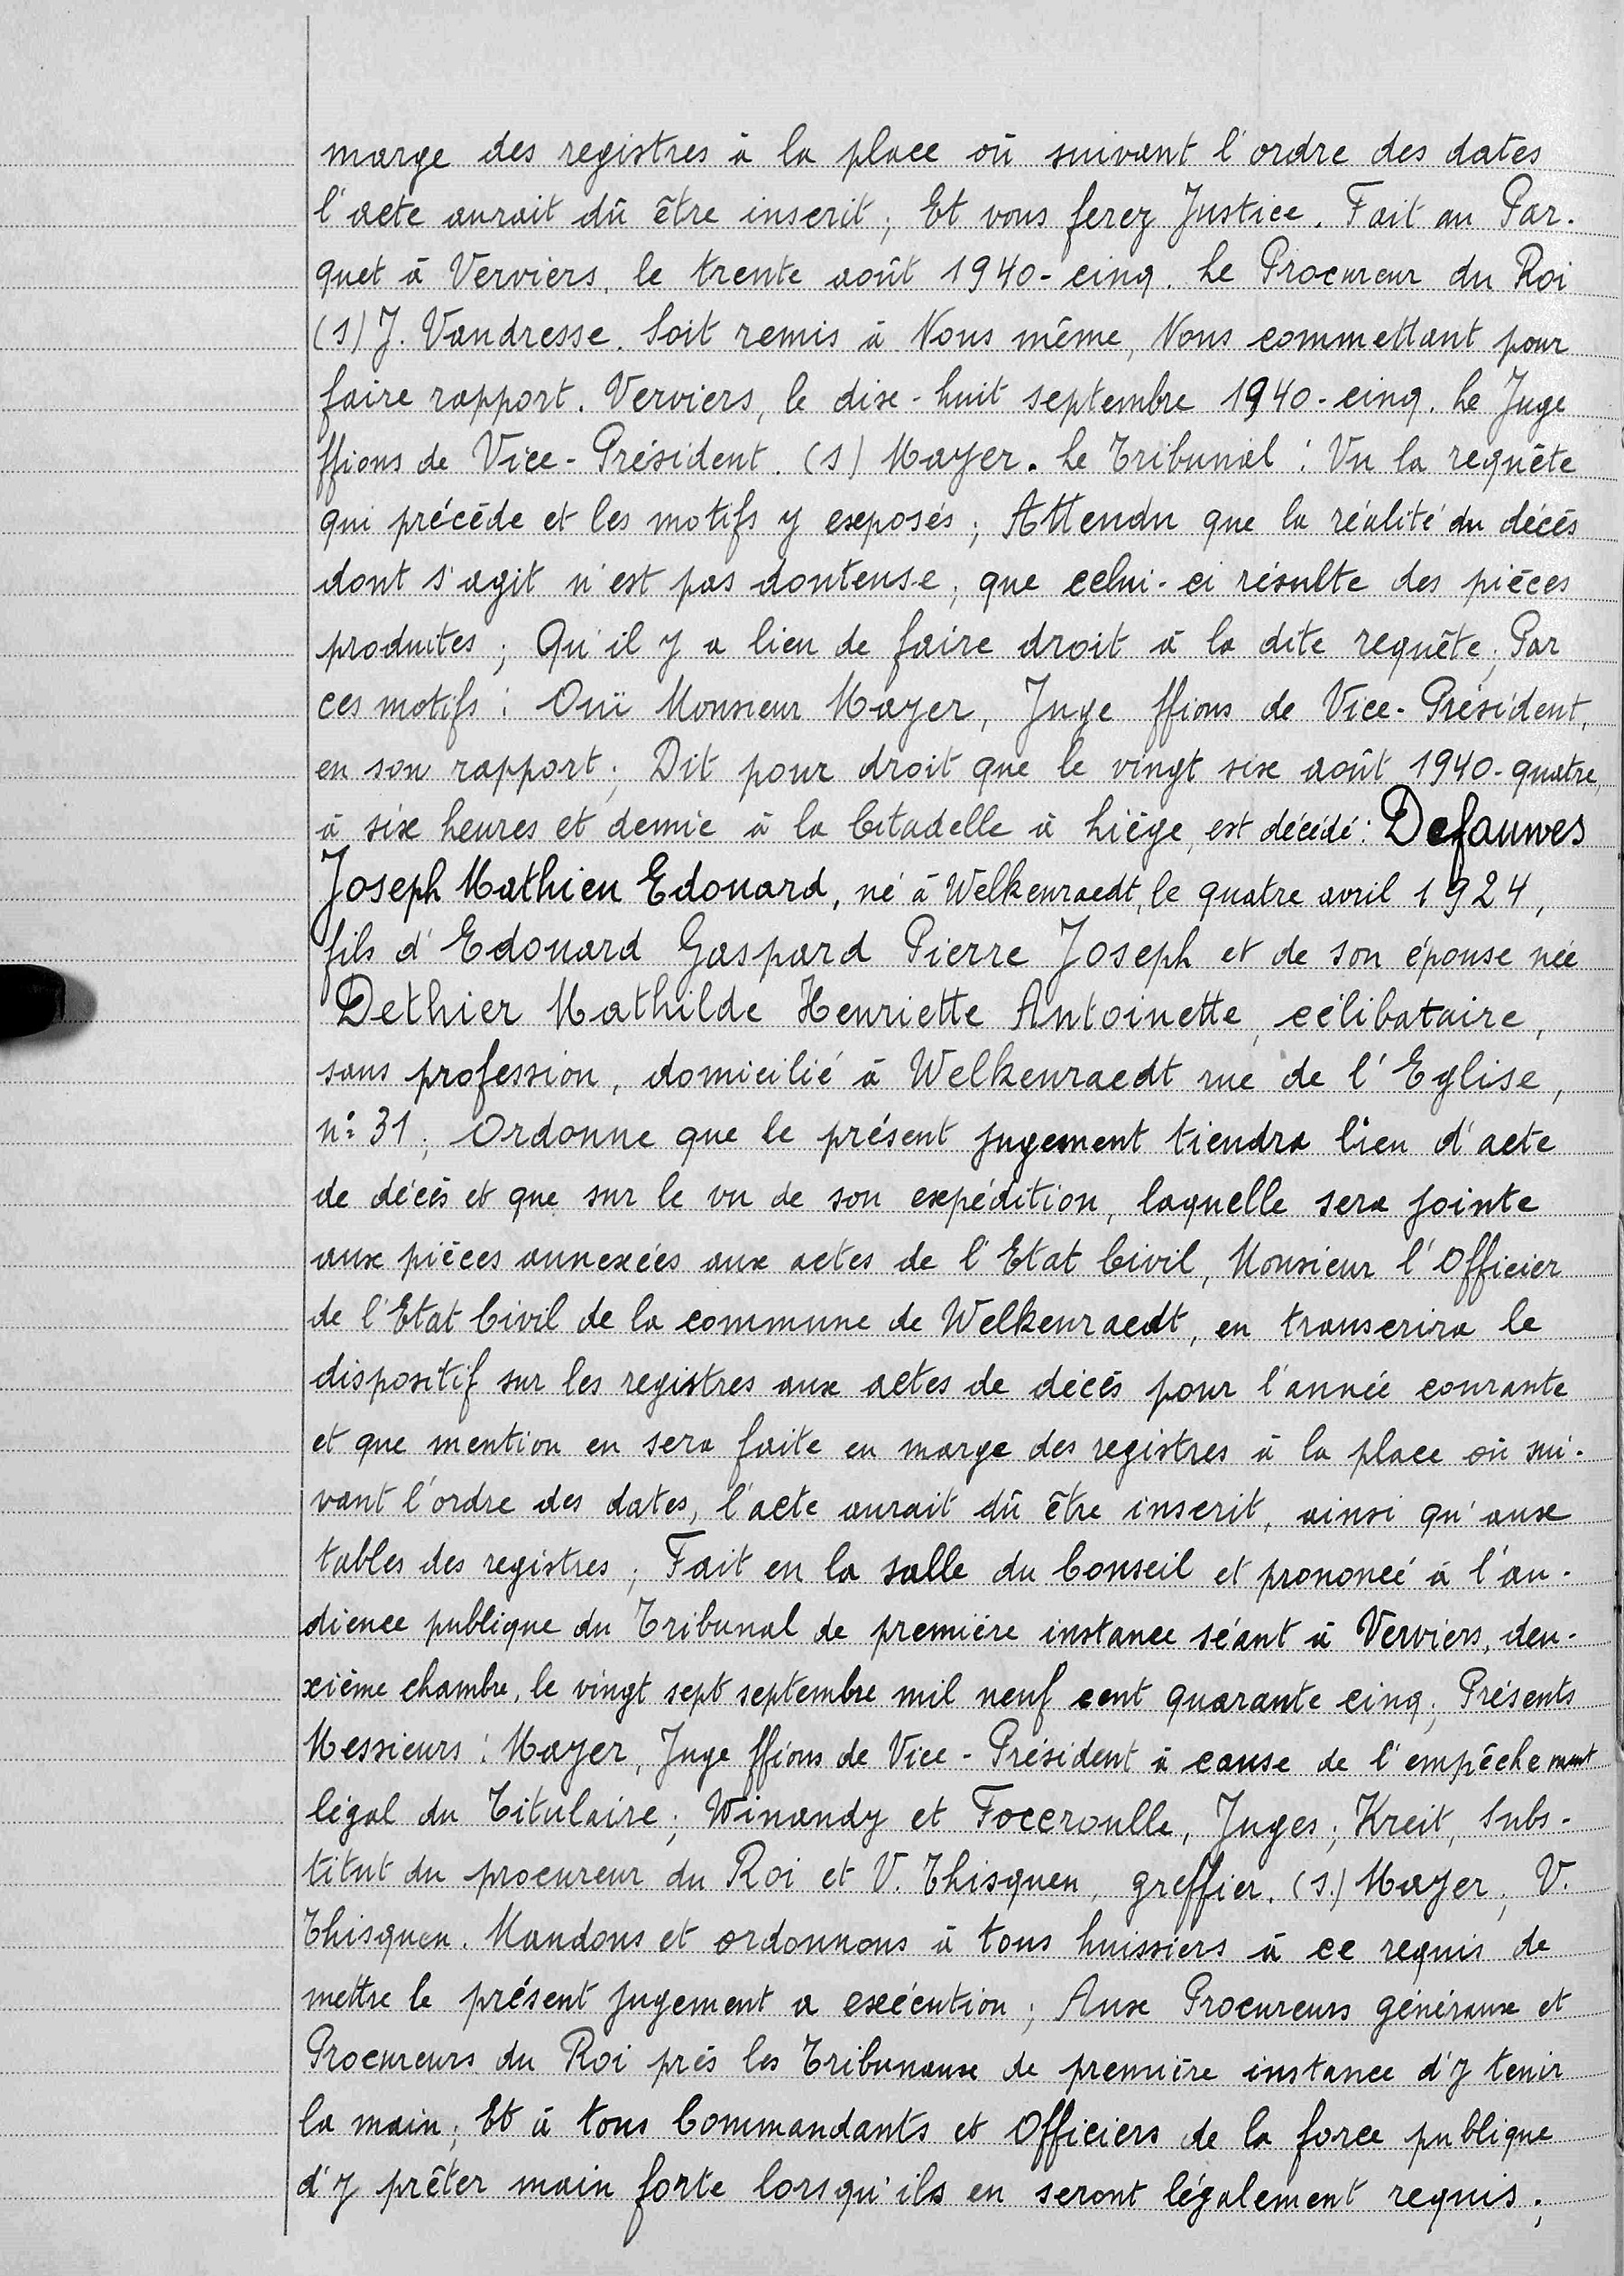 marge des registres à la place où suivant l'ordre des dates
l'acte aurait dû être inscrit ; Et vous ferez Justice. Fait au Par-
quet à Verviers, le trente août 1940-cinq. Le Procureur du Roi
(s) J. Vandresse. Soit remis à Nous même, Nous commettant pour
faire rapport. Verviers, le dix-huit septembre 1940-cinq. Le Juge
ffions de Vice-Président. (s) Mayer. Le Tribunal : Vu la requête
qui précède et les motifs y exposés ; Attendu que la réalité du décès
dont s'agit n'est pas douteuse ; que celui-ci résulte des pièces
produites ; Qu'il y a lieu de faire droit à la dite requête ; Par
ces motifs : Ouï Monsieur Mayer, Juge ffions de Vice-Président,
en son rapport ; Dit pour droit que le vingt six août 1940-quatre,
à six heures et demie à la Citadelle à Liège, est décédé : Defauwes
Joseph Mathieu Edouard, né à Welkenraedt, le quatre avril 1924,
fils d'Edouard Gaspard Pierre Joseph et de son épouse née
Dethier Mathilde Henriette Antoinette, célibataire,
sans profession, domicilié à Welkenraedt rue de l'Eglise,
n° 31 ; Ordonne que le présent jugement tiendra lieu d'acte
de décès et que sur le vu de son expédition, laquelle sera jointe
aux pièces annexées aux actes de l'Etat Civil, Monsieur l'Officier
de l'Etat Civil de la commune de Welkenraedt, en transcrira le
dispositif sur les registres aux actes de décès pour l'année courante
et que mention en sera faite en marge des registres à la place où sui-
vant l'ordre des dates, l'acte aurait dû être inscrit, ainsi qu'aux
tables des registres ; Fait en la salle du Conseil et prononcé à l'au-
dience publique du Tribunal de première instance séant à Verviers, deu-
xième chambre, le vingt sept septembre mil neuf cent quarante cinq ; Présents
Messieurs : Mayer, Juge ffions de Vice-Président à cause de l'empêchement
légal du Titulaire ; Winandy et Foccroulle, Juges ; Kreit, Subs-
titut du procureur du Roi et V. Thisquen, greffier. (s.) Mayer, V.
Thisquen. Mandons et ordonnons à tous huissiers à ce requis de
mettre le présent jugement a exécution ; Aux Procureurs généraux et
Procureurs du Roi près les Tribunaux de première instance d'y tenir
la main ; Et à tous Commandants et Officiers de la force publique
d'y prêter main forte lorsqu'ils en seront légalement requis ;